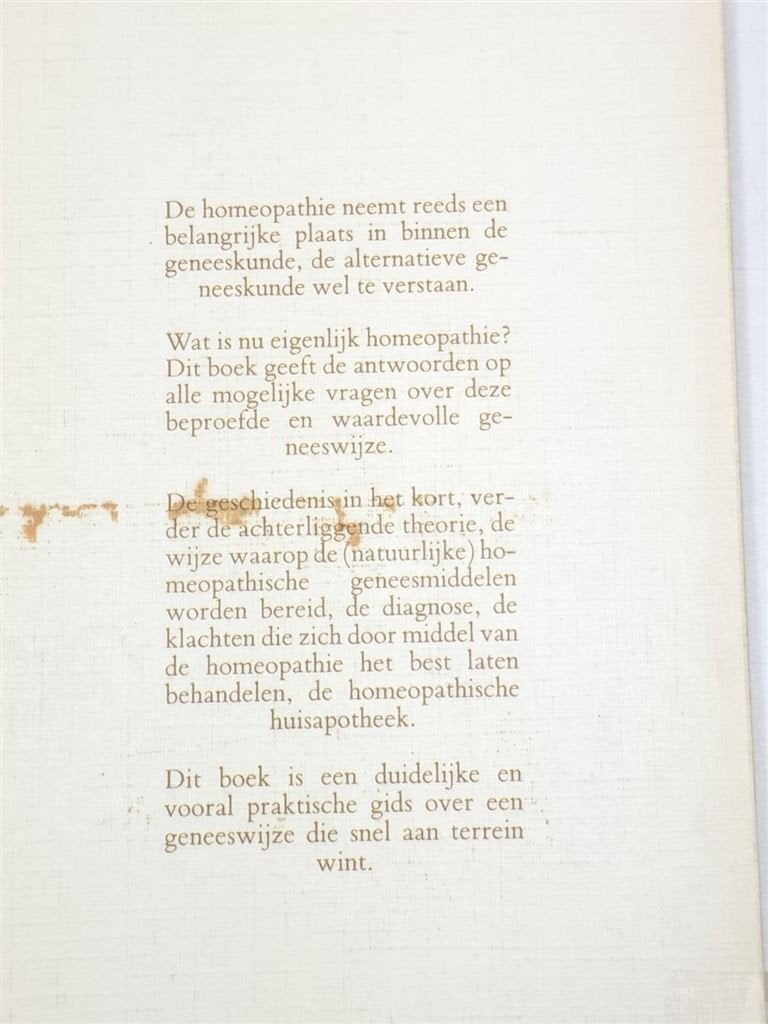 De homeopathie neemt reeds een
belangrijke plaats in binnen de
geneeskunde, de alternatieve ge-
neeskunde wel te verstaan.
Wat is nu eigenlijk homeopathie?
Dit boek geeft de antwoorden op
alle mogelijke vragen over deze
beproefde en waardevolle ge-
neeswijze.
De geschiedenis in het kort, ver-
der de achterliggende theorie, de
wijze waarop de (natuurlijke) ho-
meopathische geneesmiddelen
worden bereid, de diagnose, de
klachten die zich door middel van
de homeopathie het best laten
behandelen, de homeopathische
huisapotheek.
Dit boek is een duidelijke en
vooral praktische gids over een
geneeswijze die snel aan terrein
wint.